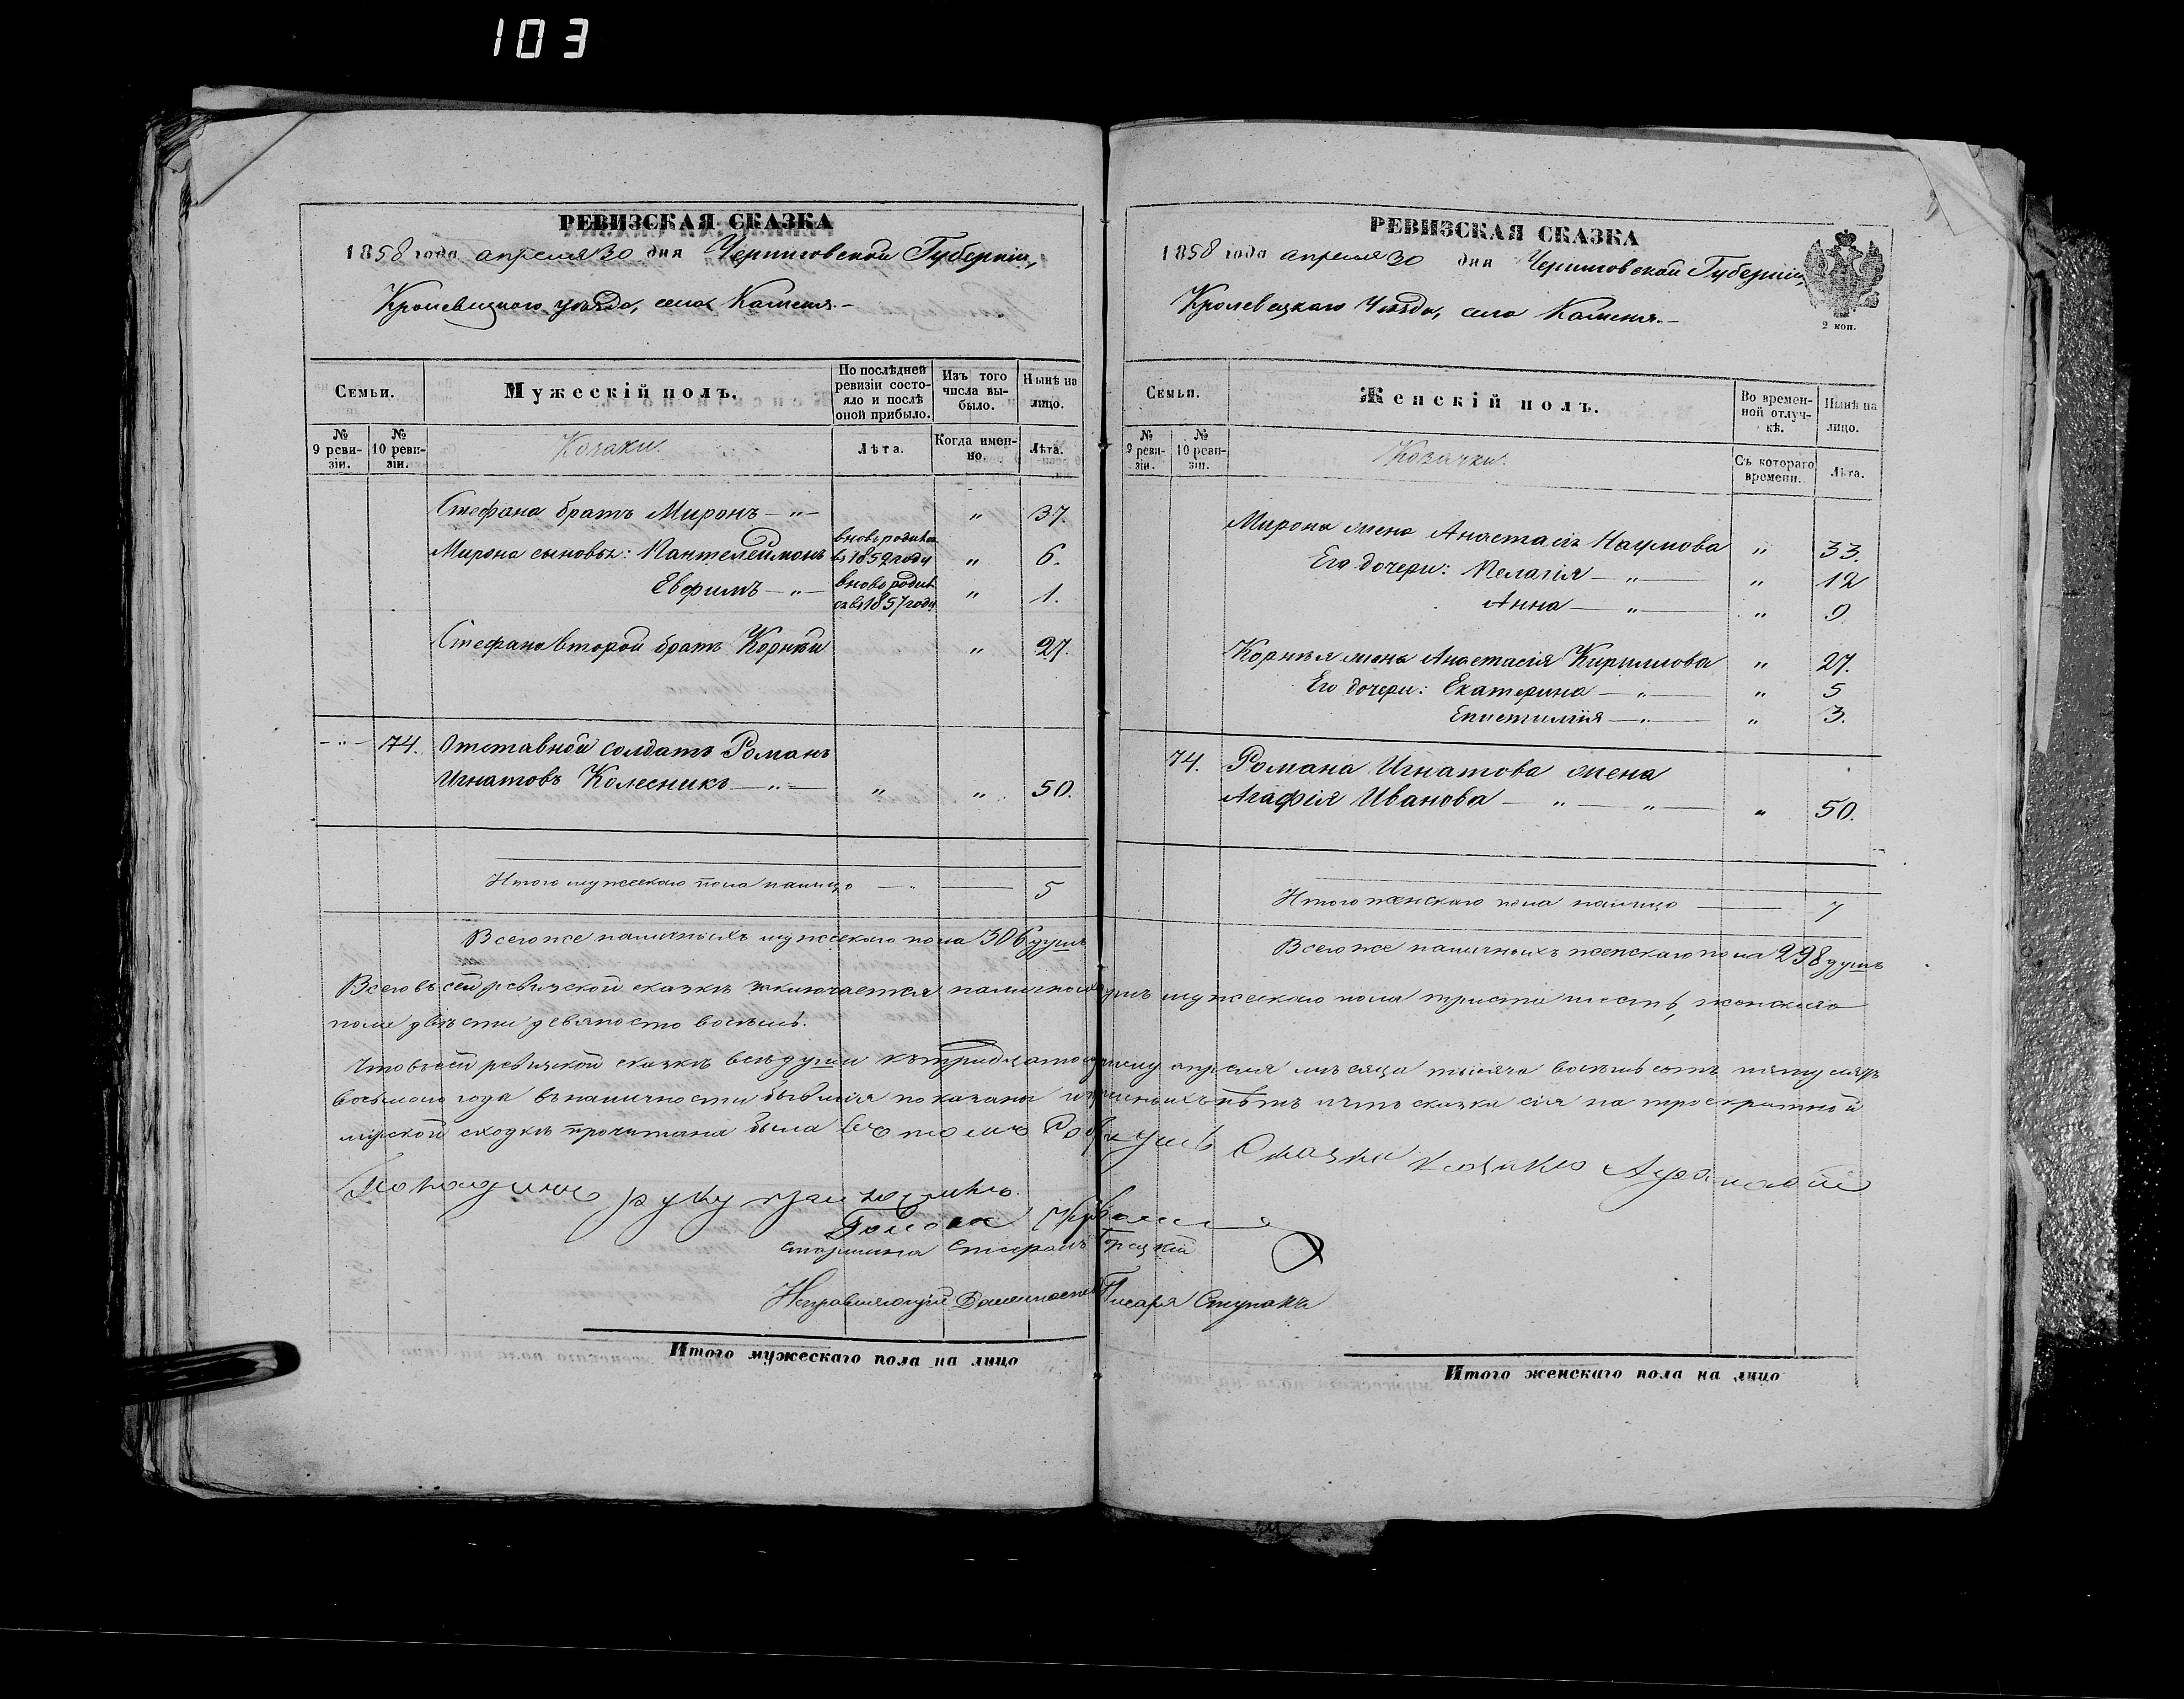 103
РЕВИЗСКАЯ СКАЗКА
1858 года апреля 30 дня Черниговской Губерніи,
Кролевецкаго уѣзда, села Каменя.-
Семьи.
Мужескій полъ.
По послѣдней ревизіи состояло и послѣ оной прибыло.
Изъ того числа выбыло.
Нынѣ на лицо.
№ 9 ревизіи.
№ 10 ревизіи.
Козаки.
Лѣта.
Когда именно.
Лѣта.
Стефана братъ Миронъ — „ — „ 37.
Мирона сыновья: Пантелеймонъ вновь родился въ 1852 году „ 6.
Евфимъ — „ — вновь родился въ 1857 году „ 1.
Стефана второй братъ Корнѣй „ 27.
— „ — 74. Отставной солдатъ Романъ
Игнатовъ Колесникъ — „ — „ „ 50.
Итого мужескаго пола налицо — „ — 5
Всего же наличныхъ мужескаго пола 306 душъ
РЕВИЗСКАЯ СКАЗКА
1858 года апреля 30 дня Черниговской Губерніи,
Кролевецкаго Уѣзда, села Каменя.-
2 коп.
Семьи.
Женскій полъ.
Во временной отлучкѣ.
Нынѣ на лицо.
№ 9 ревизіи.
№ 10 ревизіи.
Козачки.
Съ котораго времени.
Лѣта.
Мирона жена Анастасія Наумова „ 33.
Его дочери: Пелагія — „ — „ 12
Анна — „ — „ 9
Корнѣя жена Анастасія Кириллова „ 27.
Его дочери: Екатерина — „ — „ 5
Епистимія — „ — „ 3.
74. Романа Игнатова жена
Агафія Иванова — „ — „ — „ 50.
Итого женскаго пола налицо — 7
Всего же наличныхъ женскаго пола 298 душъ
Всего въ сей ревизской сказкѣ заключается наличныхъ душъ мужескаго пола триста шесть, женскаго
пола двѣсти девяносто восемь.
Что въ сей ревизской сказкѣ всѣ души къ тридцатому числу апреля мѣсяца тысяча восемь сотъ пятьдесятъ
восьмого года въ наличности бывшія показаны и сказка сія на троекратной
мірской сходкѣ прочитана была въ томъ
руку приложилъ.
Голова
Старшина Стефанъ
Исправляющій Должность Писаря Ступакъ
Итого мужескаго пола на лицо
Итого женскаго пола на лицо